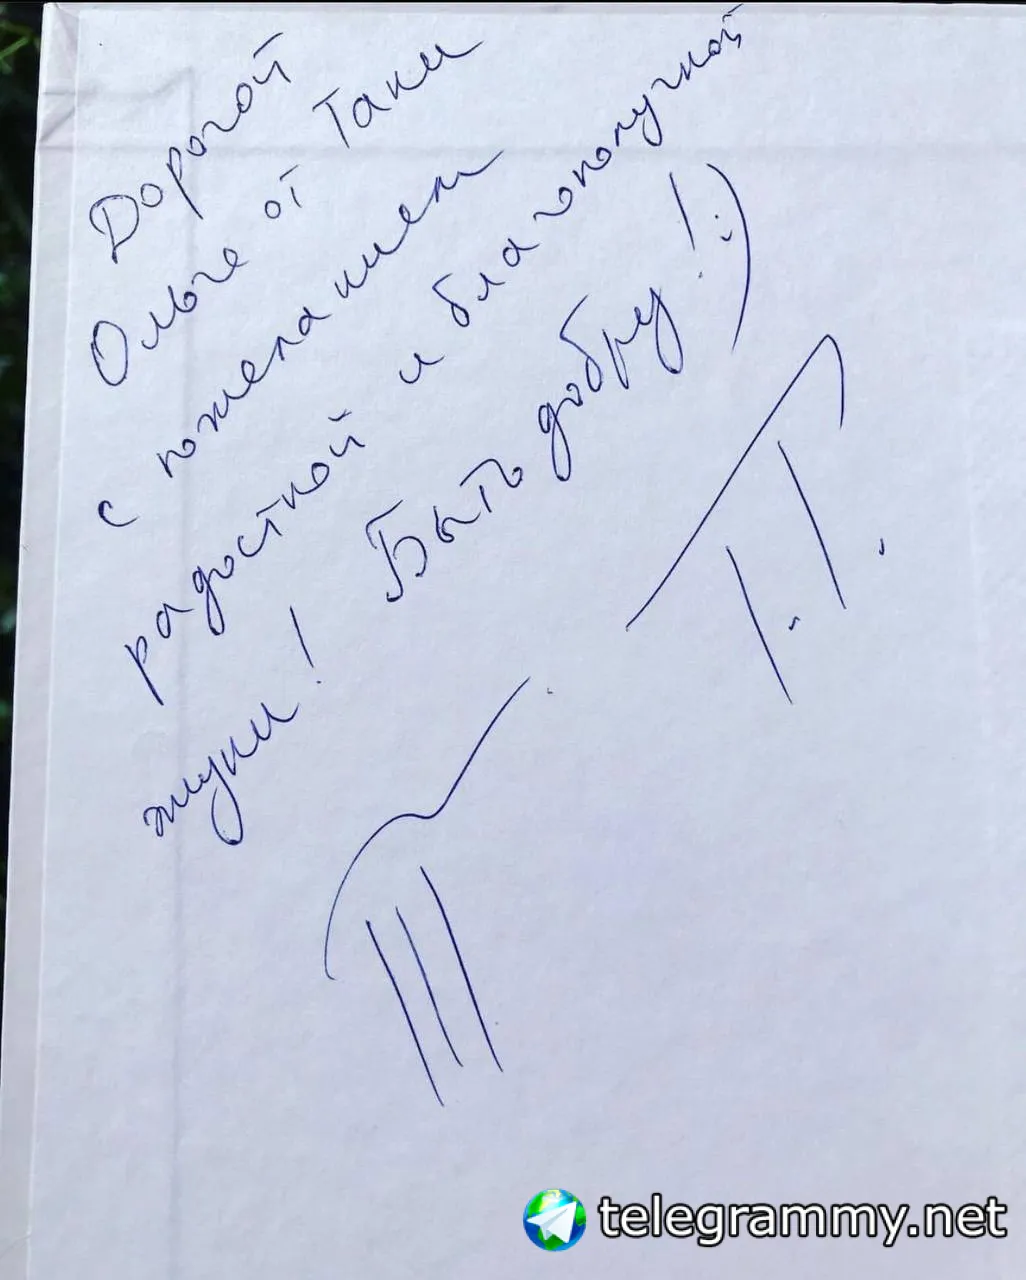 Дорогой
Ольге от Тани
с пожеланием
радостной и благополучной
жизни! Быть добру!:)
Т.Т.
telegrammy.net